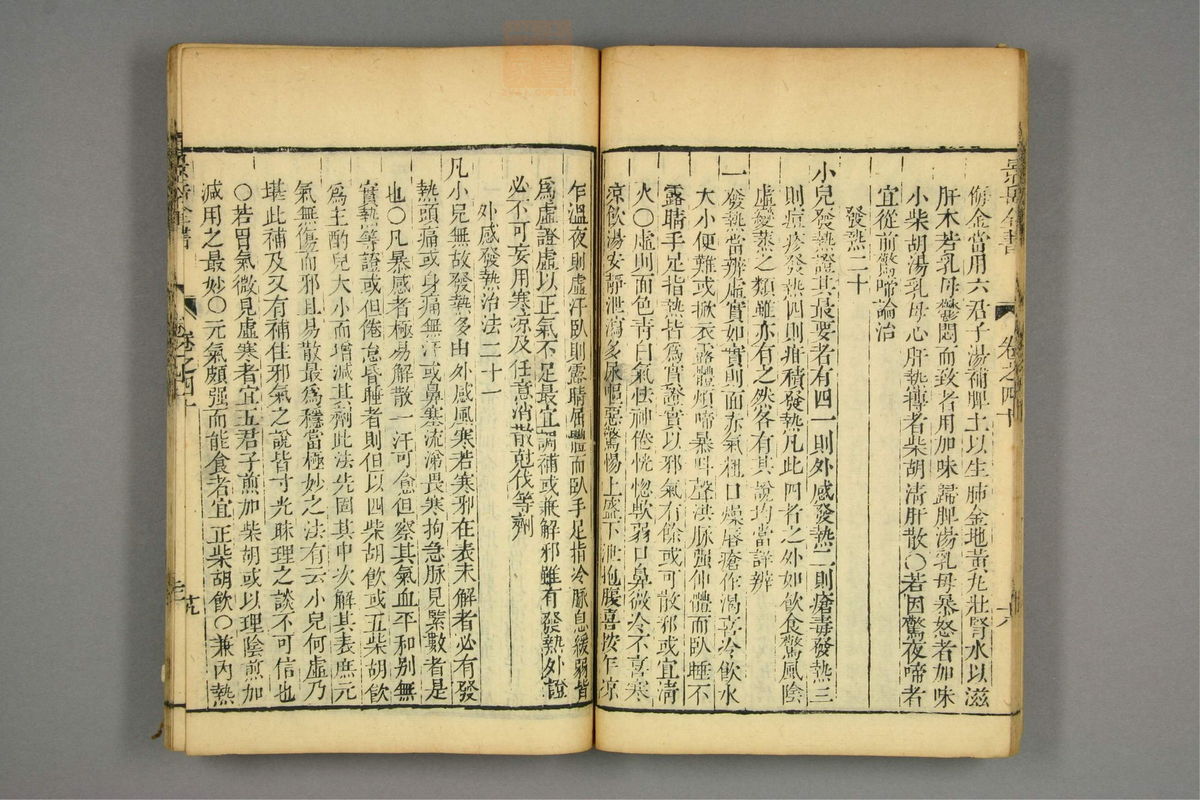 侮金當用六君子湯補脾土以生肺金地黃丸壯腎水以滋
肝木若乳母鬱悶而致者用加味歸脾湯乳母暴怒者加味
小柴胡湯乳母心肝熱摶者柴胡清肝散○若因驚夜啼者
宜從前驚啼論治
發熱二十
小兒發熱證其最要者有四一則外感發熱二則瘡毒發熱三
則痘疹發熱四則疳積發熱凡此四者之外如飲食驚風陰
虛變蒸之類雖亦有之然各有其說均當詳辨
一發熱當辨虛實如實則面赤氣粗口燥唇瘡作渴喜冷飲水
大小便難或掀衣露體煩啼暴呌聲洪脉强伸體而臥睡不
露睛手足指熱皆為實證實以邪氣有餘或可散邪或宜清
火○虛則面色青白氣怯神倦恍惚軟弱口鼻微冷不喜寒
凉飲湯安靜泄瀉多尿嘔惡驚惕上盛下泄抱腹喜按乍凉
卷之四十
乍溫夜則虛汗臥則露睛屈體而臥手足指冷脈息緩弱皆
為虛證虛以正氣不足最宜調補或兼解邪雖有發熱外證
必不可妄用寒凉及任意消散尅伐等劑
外感發熱治法二十一
凡小兒無故發熱多由外感風寒若寒邪在表未解者必有發
熱頭痛或身痛無汗或鼻塞流涕畏寒拘急脈見緊數者是
也○凡暴感者極易解散一汗可愈但察其氣血平和別無
實熱等證或但倦怠昏睡者則但以四柴胡飲或五柴胡飲
為主酌兒大小而增減其劑此法先固其中次解其表庶元
氣無傷而邪且易散最為穩當極妙之法有云小兒何虛乃
堪此補及又有補住邪氣之說皆寸光昧理之談不可信也
○若胃氣微見虛寒者宜五君子煎加柴胡或以理陰煎加
減用之最妙○元氣頗强而能食者宜正柴胡飲○兼內熱